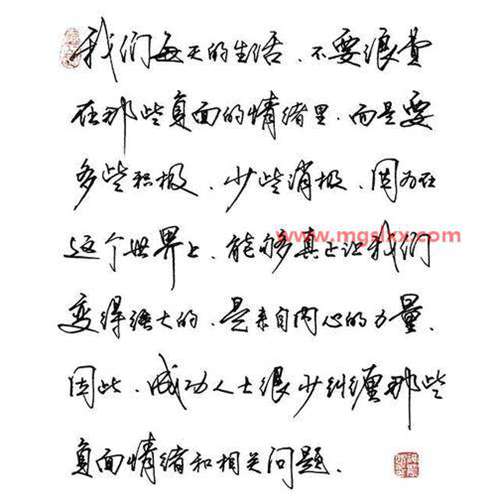 我们每天的生活、不要浪费
在那些负面的情绪里.而是要
多些积极、少些消极、因为在
这个世界上、能够真正让我们
www.mgslxx.com
变得强大的、是来自内心的力量、
因此、成功人士很少纠缠那些
负面情绪和相关问题.